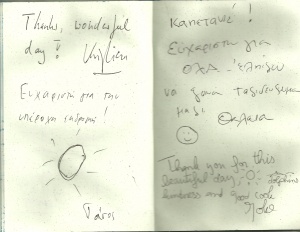 Thanks, wonderful
day!
Ευχαριστώ για την
υπέροχη εκδρομή!
Πάρος
Καπετάνιε!
Ευχαριστώ για
όλα. Ελπίζω
να ξανα ταξιδέψουμε
μαζί
Thank you for this
beautiful day!
and good cook